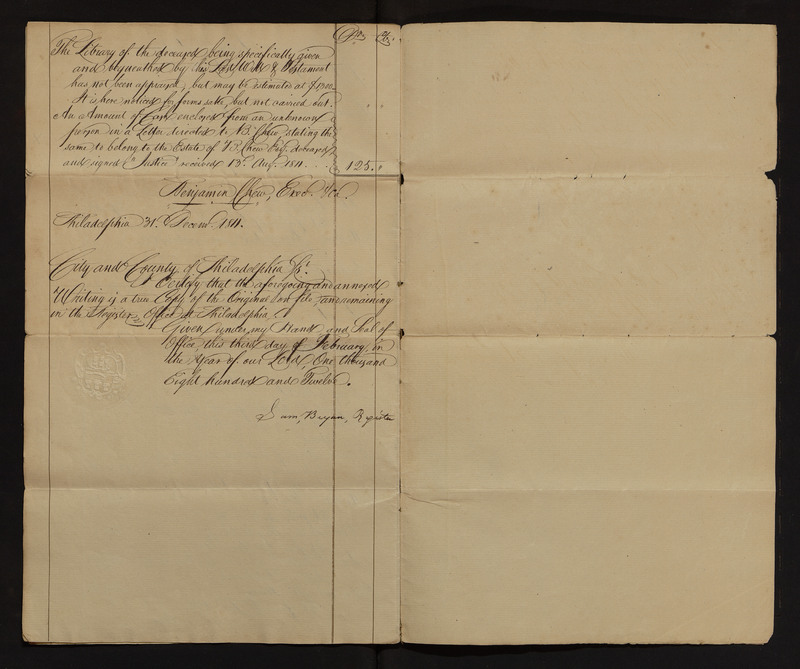 Drs. Cts.
The Library of the deceased being specifically given
and bequeathed by his Last Will & Testament
has not been appraised, but may be estimated at $
It is here noticed for forms sake, but not carried out.
An Amount of Cash enclosed from an unknown
person in a Letter directed to B. Chew, stating the
same to belong to the Estate of B. Chew Esqr. deceased
and signed "Justice" received 13th. Aug. 1811 . . . 125. "
Benjamin Chew, Exec.
Philadelphia 31. Decemr. 1811.
City and County of Philadelphia Ss.
I Certify that the aforegoing and annexed
Writing is a true Copy of the Original on file and remaining
in the Registers Office at Philadelphia
Given under my Hand and Seal of
Office, this third day of February, in
the Year of our Lord, One thousand
Eight hundred and Twelve.
Sam, Bryan, Register